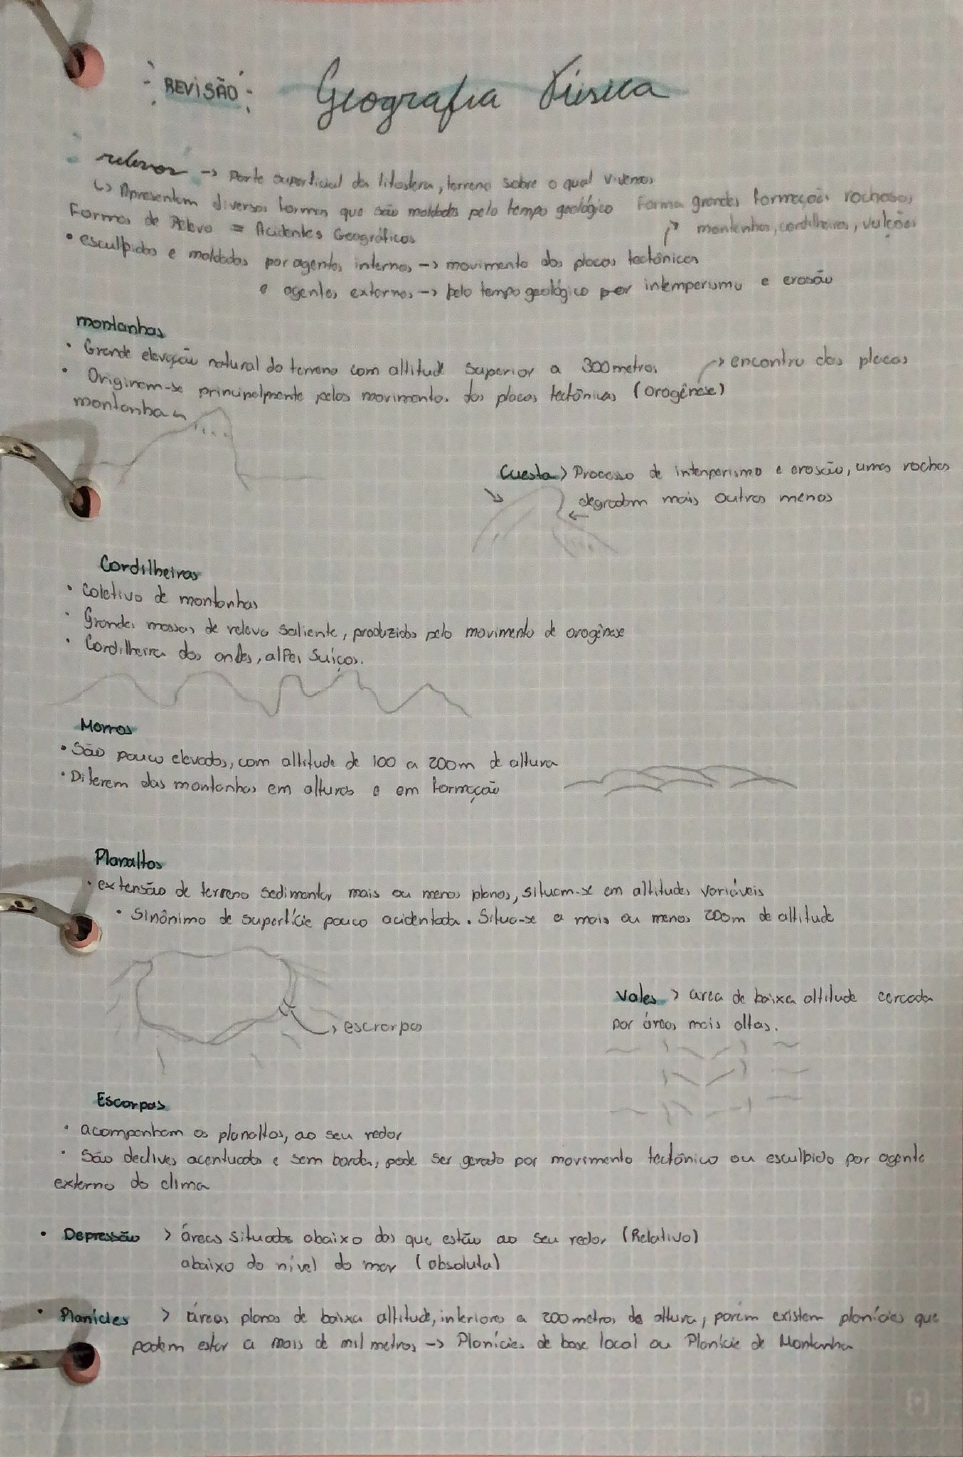 REVISÃO Geografia Física
relevo -> Parte superficial da litosfera, terreno sobre o qual vivemos
↳ Apresentam diversas formas que são moldadas pelo tempo geológico Forma grandes formações rochosas,
Formas de Relevo = Acidentes Geográficos montanhas, cordilheiras, vulções
• esculpidos e moldados por agentes internos -> movimento das placas tectônicas
e agentes externos -> pelo tempo geológico por intemperismo e erosão
montanhas
• Grande elevação natural do terreno com altitude superior a 300 metros -> encontro das placas
• Originam-se principalmente pelos movimentos das placas tectônicas (orogênese)
montanha
Cuesta > Processo de intemperismo e erosão, umas rochas
degradam mais outras menos
Cordilheiras
• Coletivo de montanhas
• Grandes massas de relevo saliente, produzidas pelo movimento de orogênese
• Cordilheira dos andes, alpes suíços.
Morros
• São pouco elevados, com altitude de 100 a 200m de altura
• Diferem das montanhas em alturas e em formação
Planaltos
• extensão de terreno sedimentar mais ou menos planos, situam-se em altitudes variáveis
• Sinônimo de superfície pouco acidentada. Situa-se a mais ou menos 200m de altitude
Vales > área de baixa altitude cercada
por áreas mais altas.
escarpa
Escarpas
• acompanham os planaltos, ao seu redor
• São declives acentuados e sem borda, pode ser gerado por movimento tectônico ou esculpido por agente
externo do clima
• Depressão > áreas situadas abaixo das que estão ao seu redor (Relativo)
abaixo do nível do mar (absoluta)
• Planícies > áreas planas de baixa altitude, inferiores a 200 metros de altura, porém existem planícies que
podem estar a mais de mil metros -> Planícies de base local ou Planície de Montanha